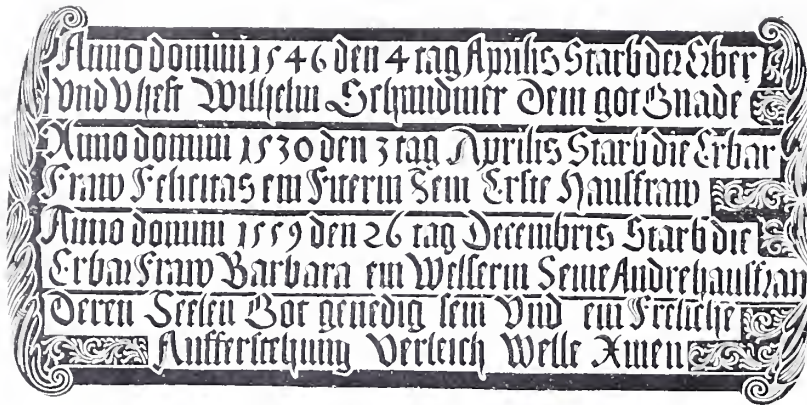 Anno domini 1546 den 4 tag Aprilis Starb der Erber
Vnd Vhest Wilhelm Schmidmer Dem got Gnade
Anno domini 1530 den 3 tag Aprilis Starb die Erbar
Fraw Felicitas ein Fiterin Sein Erste Hausfraw
Anno domini 1559 den 26 tag Decembris Starb die
Erbar Fraw Barbara ein Welserin Seine Andre hausfraw
Deren Seelen Got genedig sein Vnd ein Freliche
Aufferstehung Verleich Welle Amen